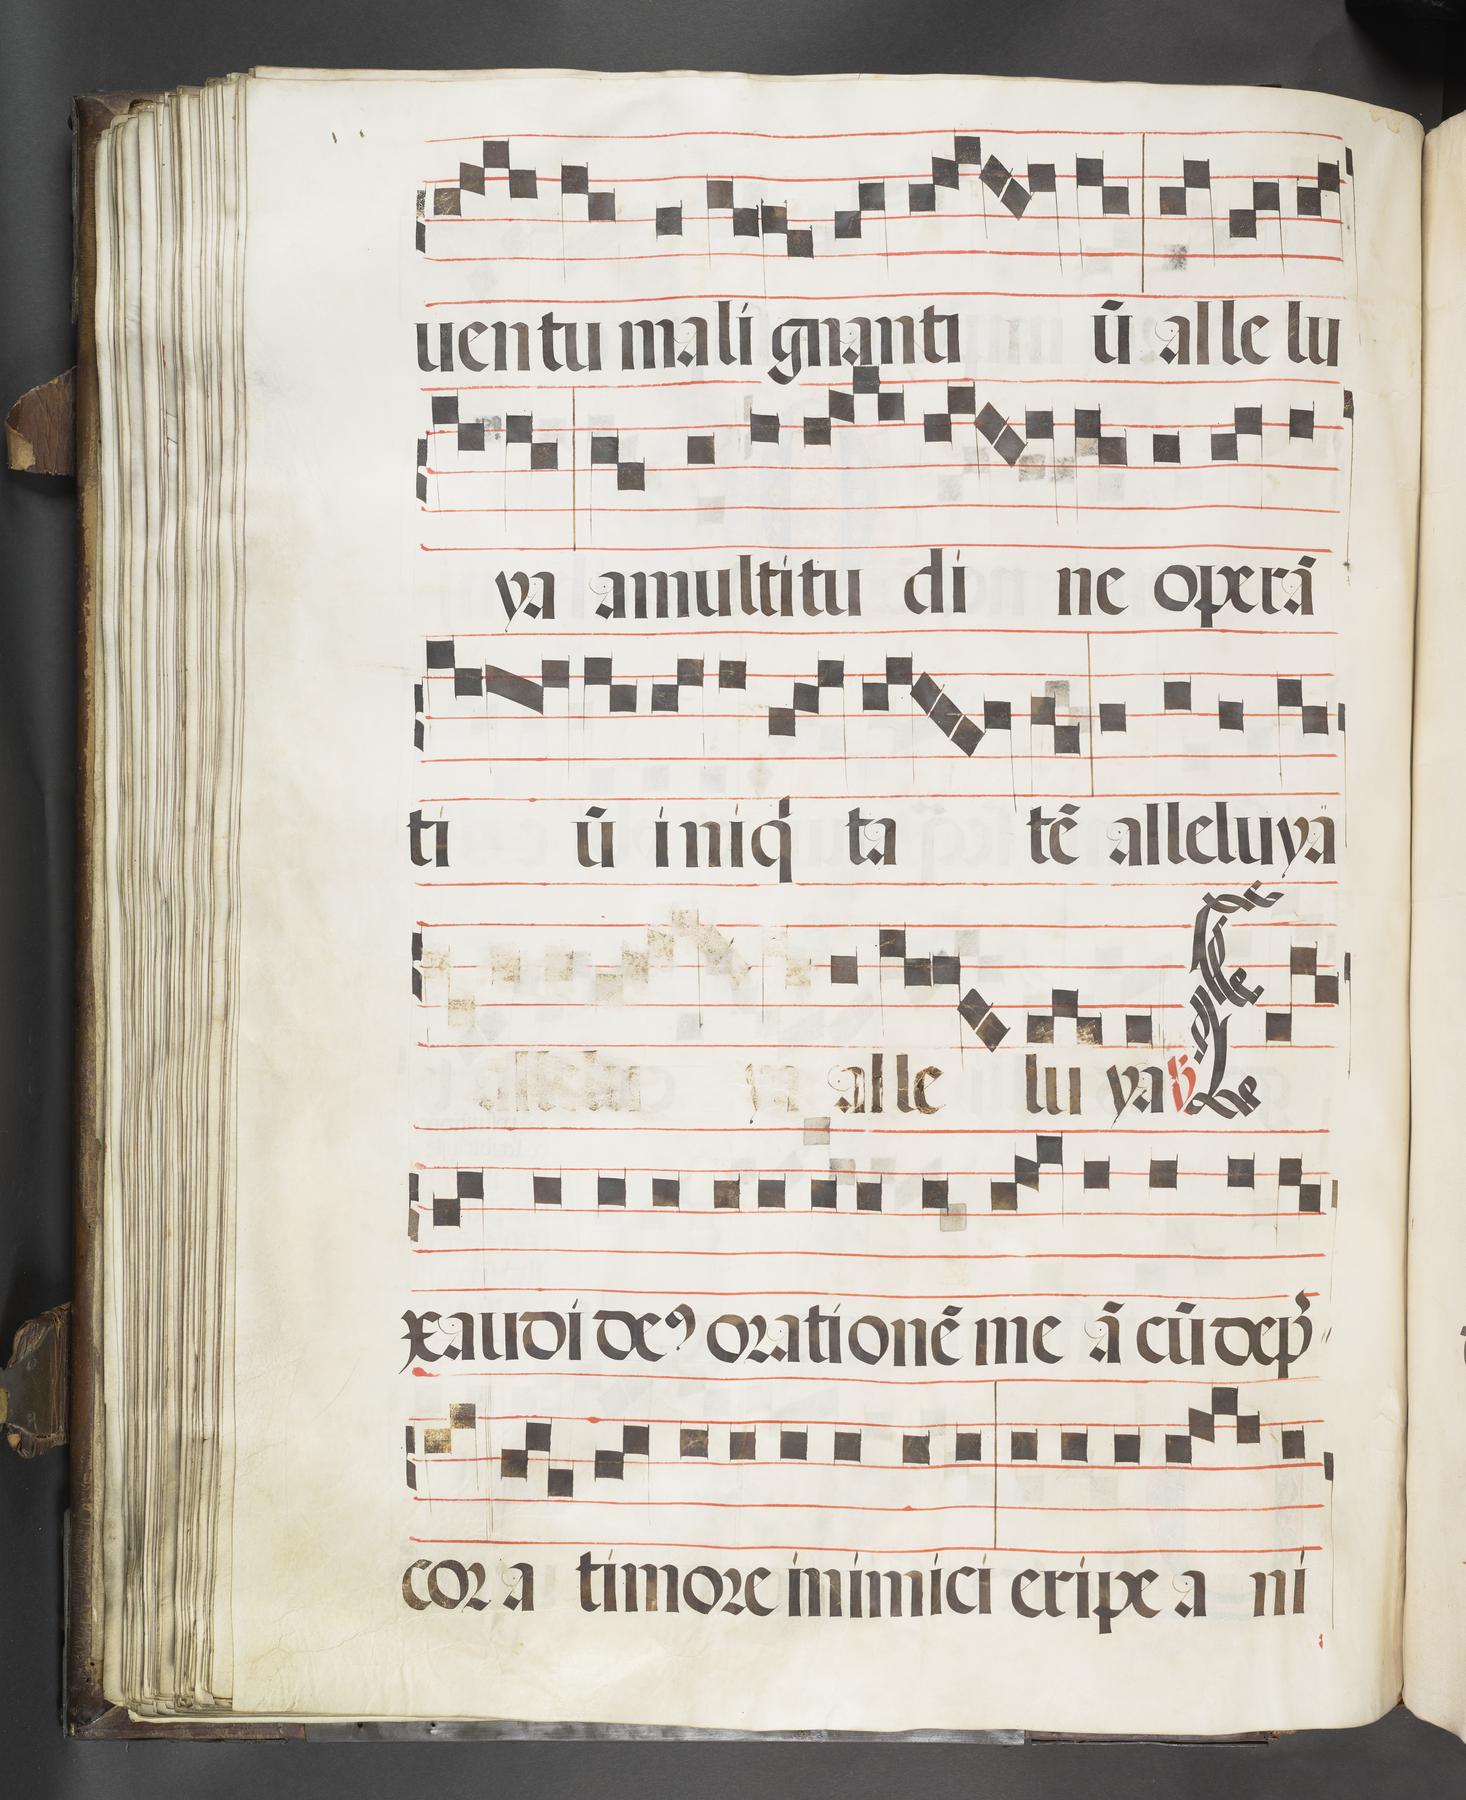 uentu mali gnanti ū alle lu
ya amultitu di ne operā
ti ū iniq ta tē alleluya
ya alle lu ya ℣
xaudi deꝰ orationē me ā cū dep̄
cor a timore inimici eripe a ni